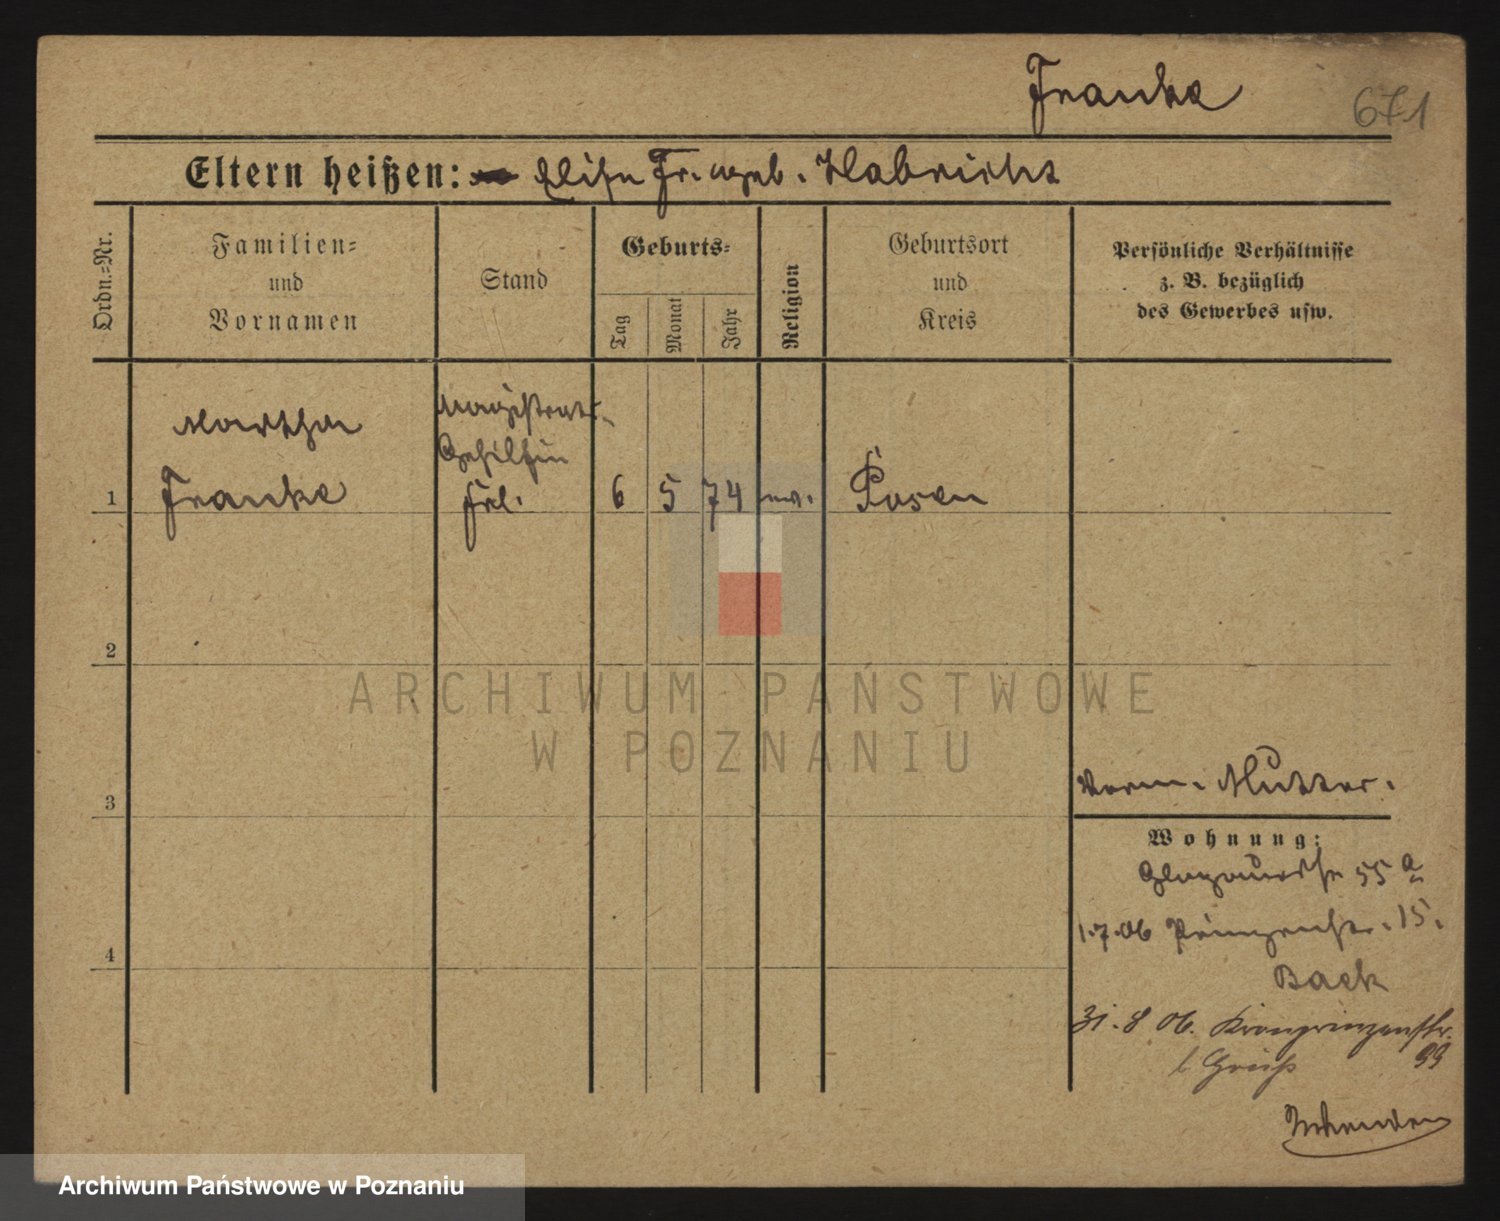 Franke
671
Eltern heißen: Elise Fr. geb. Habricht
Ordn.-Nr.
Familien-
und
Vornamen
Stand
Geburts-
Tag
Monat
Jahr
Religion
Geburtsort
und
Kreis
Persönliche Verhältnisse
z. B. bezüglich
des Gewerbes usw.
Martha
Magistrats-
Gehilfin
1 Franke Frl. 6 5 74 ev. Posen
2
ARCHIWUM PAŃSTWOWE
W POZNANIU
3
Vorm. Mutter.
Wohnung:
Glogauerstr 55 a
1.7.06 Prinzenstr. 15.
Back
4
31.8 06. Kronprinzenstr.
b Gruß 99
Archiwum Państwowe w Poznaniu